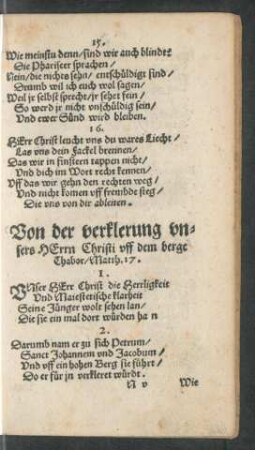 15.
Wie meinstu denn/sind wir auch blinde?
Die Phariseer sprachen/
Nein/die nichts sehn/entschüldigt sind/
Drumb wil ich euch wol sagen/
Weil jr selbst sprecht/jr sehet fein/
So werd jr nicht vnschüldig sein/
Vnd ewer Sünd wird bleiben.
16.
HErr Christ leucht vns du wares Liecht/
Las vns dein Fackel brennen/
Das wir in finstern tappen nicht/
Vnd dich im Wort recht kennen/
Vff das wir gehn den rechten weg/
Vnd nicht komen vff frembde steg/
Die vns von dir ableiten.
Von der verklerung vn-
sers HErrn Christi vff dem berge
Thabor/Matth.17.
1.
VNser HErr Christ die Herrligkeit
Vnd Maiestetische klarheit
Seine Jünger wolt sehen lan/
Die sie ein mal dort würden han
2.
Darumb nam er zu sich Petrum/
Sanct Johannem vnd Jacobum/
Vnd vff ein hohen Berg sie führt/
Do er für jn verkleret würdt.
N v Wie